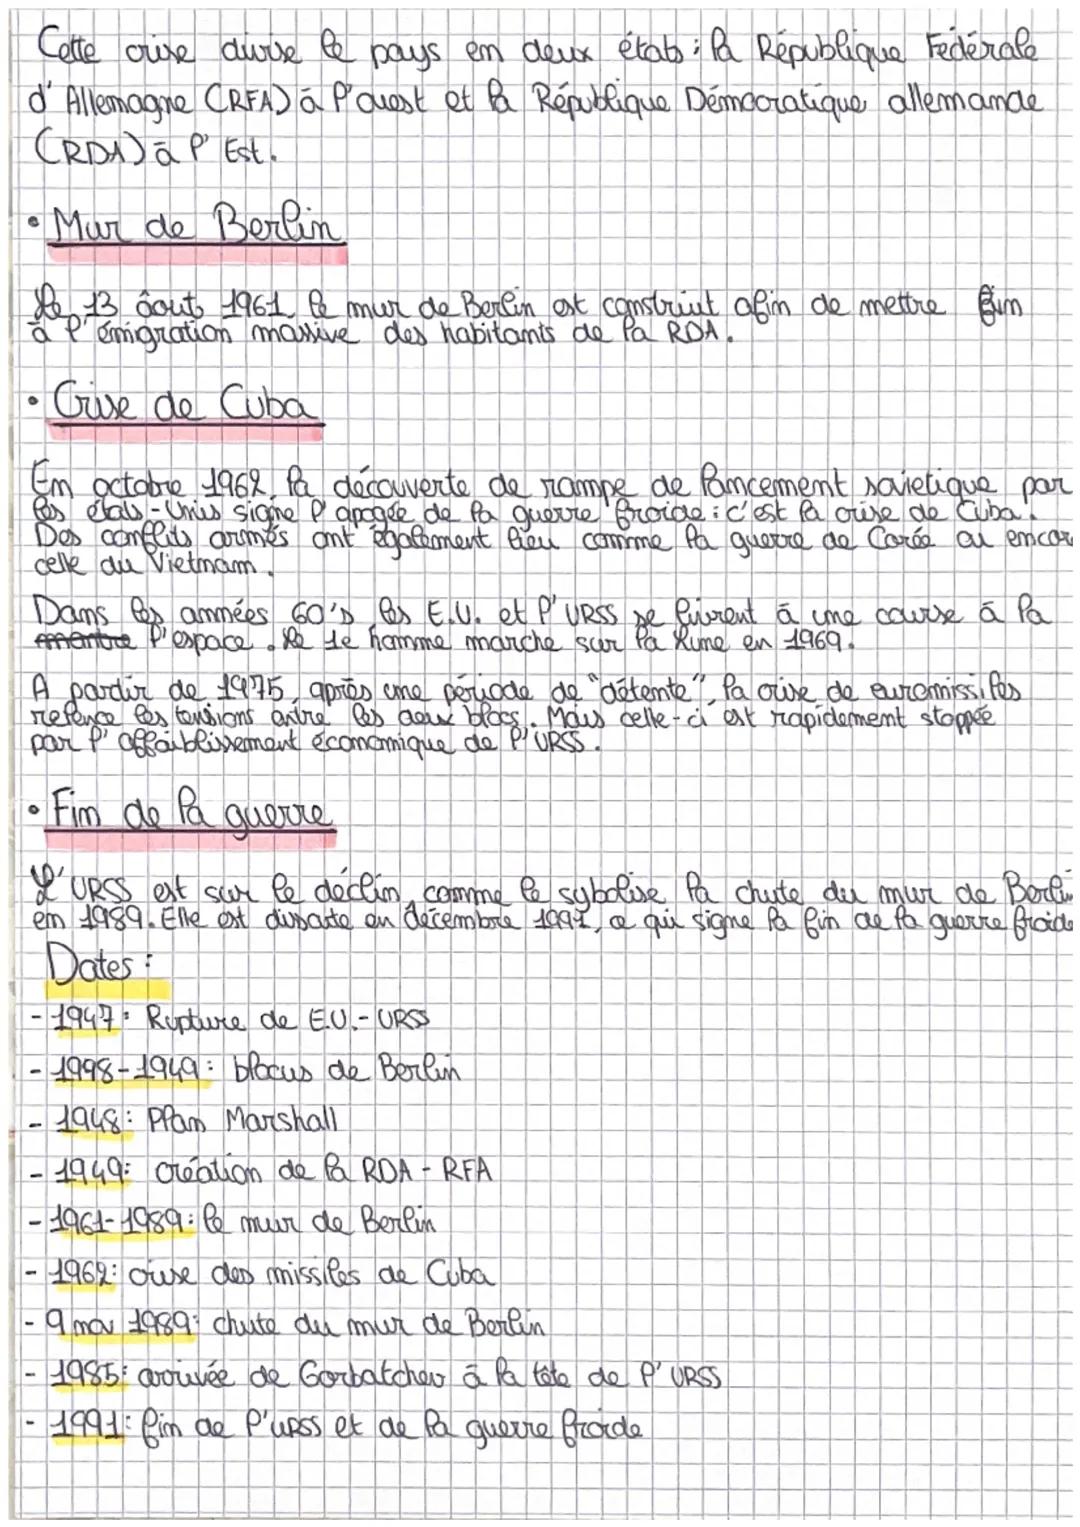 Cette crise divise le pays en deux états : la République Fédérale
d'Allemagne (RFA) à l'ouest et la République Démocratique allemande
(RDA) à l'Est.
• Mur de Berlin
Le 13 âout 1961 le mur de Berlin est construit afin de mettre fin
à l'émigration massive des habitants de la RDA.
• Crise de Cuba
En octobre 1962, la découverte de rampe de lancement soviétique par
les états-Unis signe l'apogée de la guerre froide : c'est la crise de Cuba.
Des conflits armés ont également lieu comme la guerre de Corée ou encor
celle du Vietnam.
Dans les années 60's les E.U. et l'URSS se livrent à une course à la
montre l'espace. Le 1e homme marche sur la lune en 1969.
A partir de 1975, après une période de "détente", la crise de euromissiles
relence les tensions entre les deux blocs. Mais celle-ci est rapidement stoppée
par l'affaiblissement économique de l'URSS.
• Fin de la guerre
L'URSS est sur le déclin, comme le sybolise la chute du mur de Berlin
en 1989. Elle est dissoute en décembre 1991, ce qui signe la fin de la guerre froide
Dates :
- 1947 : Rupture de E.U.-URSS
- 1998-1949 : blocus de Berlin
- 1948 : Plan Marshall
- 1949 : création de la RDA - RFA
- 1961-1989 : le mur de Berlin
- 1962 : crise des missiles de Cuba
- 9 nov 1989 : chute du mur de Berlin
- 1985 : arrivée de Gorbatchev à la tête de l'URSS
- 1991 : fin de l'URSS et de la guerre froide